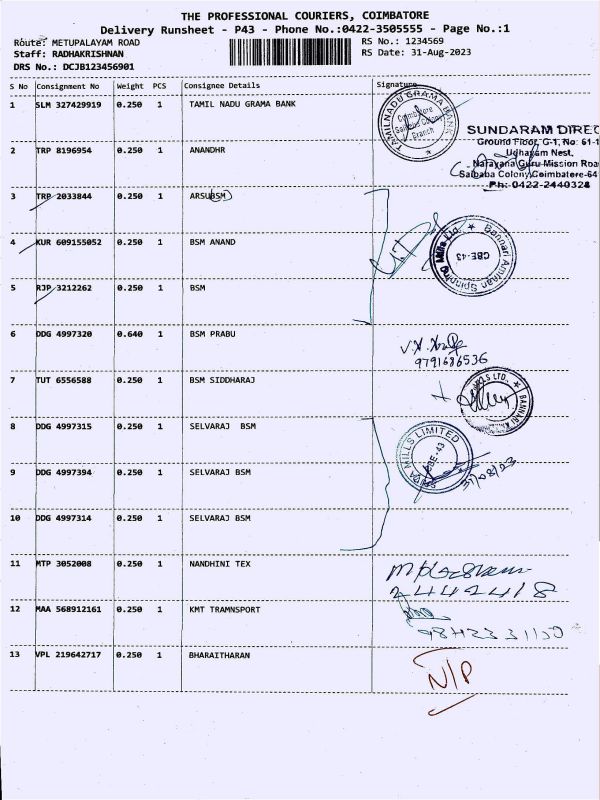 THE PROFESSIONAL COURIERS, COIMBATORE
Delivery Runsheet - P43 - Phone No.:0422-3505555 - Page No.:1
Route: METUPALAYAM ROAD RS No.: 1234569
Staff: RADHAKRISHNAN RS Date: 31-Aug-2023
DRS No.: DCJB123456901
S No Consignment No Weight PCS Consignee Details Signature
1 SLM 327429919 0.250 1 TAMIL NADU GRAMA BANK
TAMILNADU GRAMA BANK
Coimbatore
Saibaba Colony
Branch
SUNDARAM DIREC
Ground Floor, G-1, No: 61-1
Udhagam Nest,
Narayana Guru Mission Roa
Saibaba Colony, Coimbatore-64
Ph: 0422-2440328
2 TRP 8196954 0.250 1 ANANDHR
3 TRP 2033844 0.250 1 ARSUBSM
4 KUR 609155052 0.250 1 BSM ANAND
Bannari Amman Spinning Mills Ltd.
CBE-43
5 RJP 3212262 0.250 1 BSM
6 DDG 4997320 0.640 1 BSM PRABU
9791686536
7 TUT 6556588 0.250 1 BSM SIDDHARAJ
MILLS LTD.
BANNARI
8 DDG 4997315 0.250 1 SELVARAJ BSM
MILLS LIMITED
CBE-43
31/08/23
9 DDG 4997394 0.250 1 SELVARAJ BSM
10 DDG 4997314 0.250 1 SELVARAJ BSM
11 MTP 3052008 0.250 1 NANDHINI TEX
2442418
12 MAA 568912161 0.250 1 KMT TRAMNSPORT
13 VPL 219642717 0.250 1 BHARAITHARAN
N/P